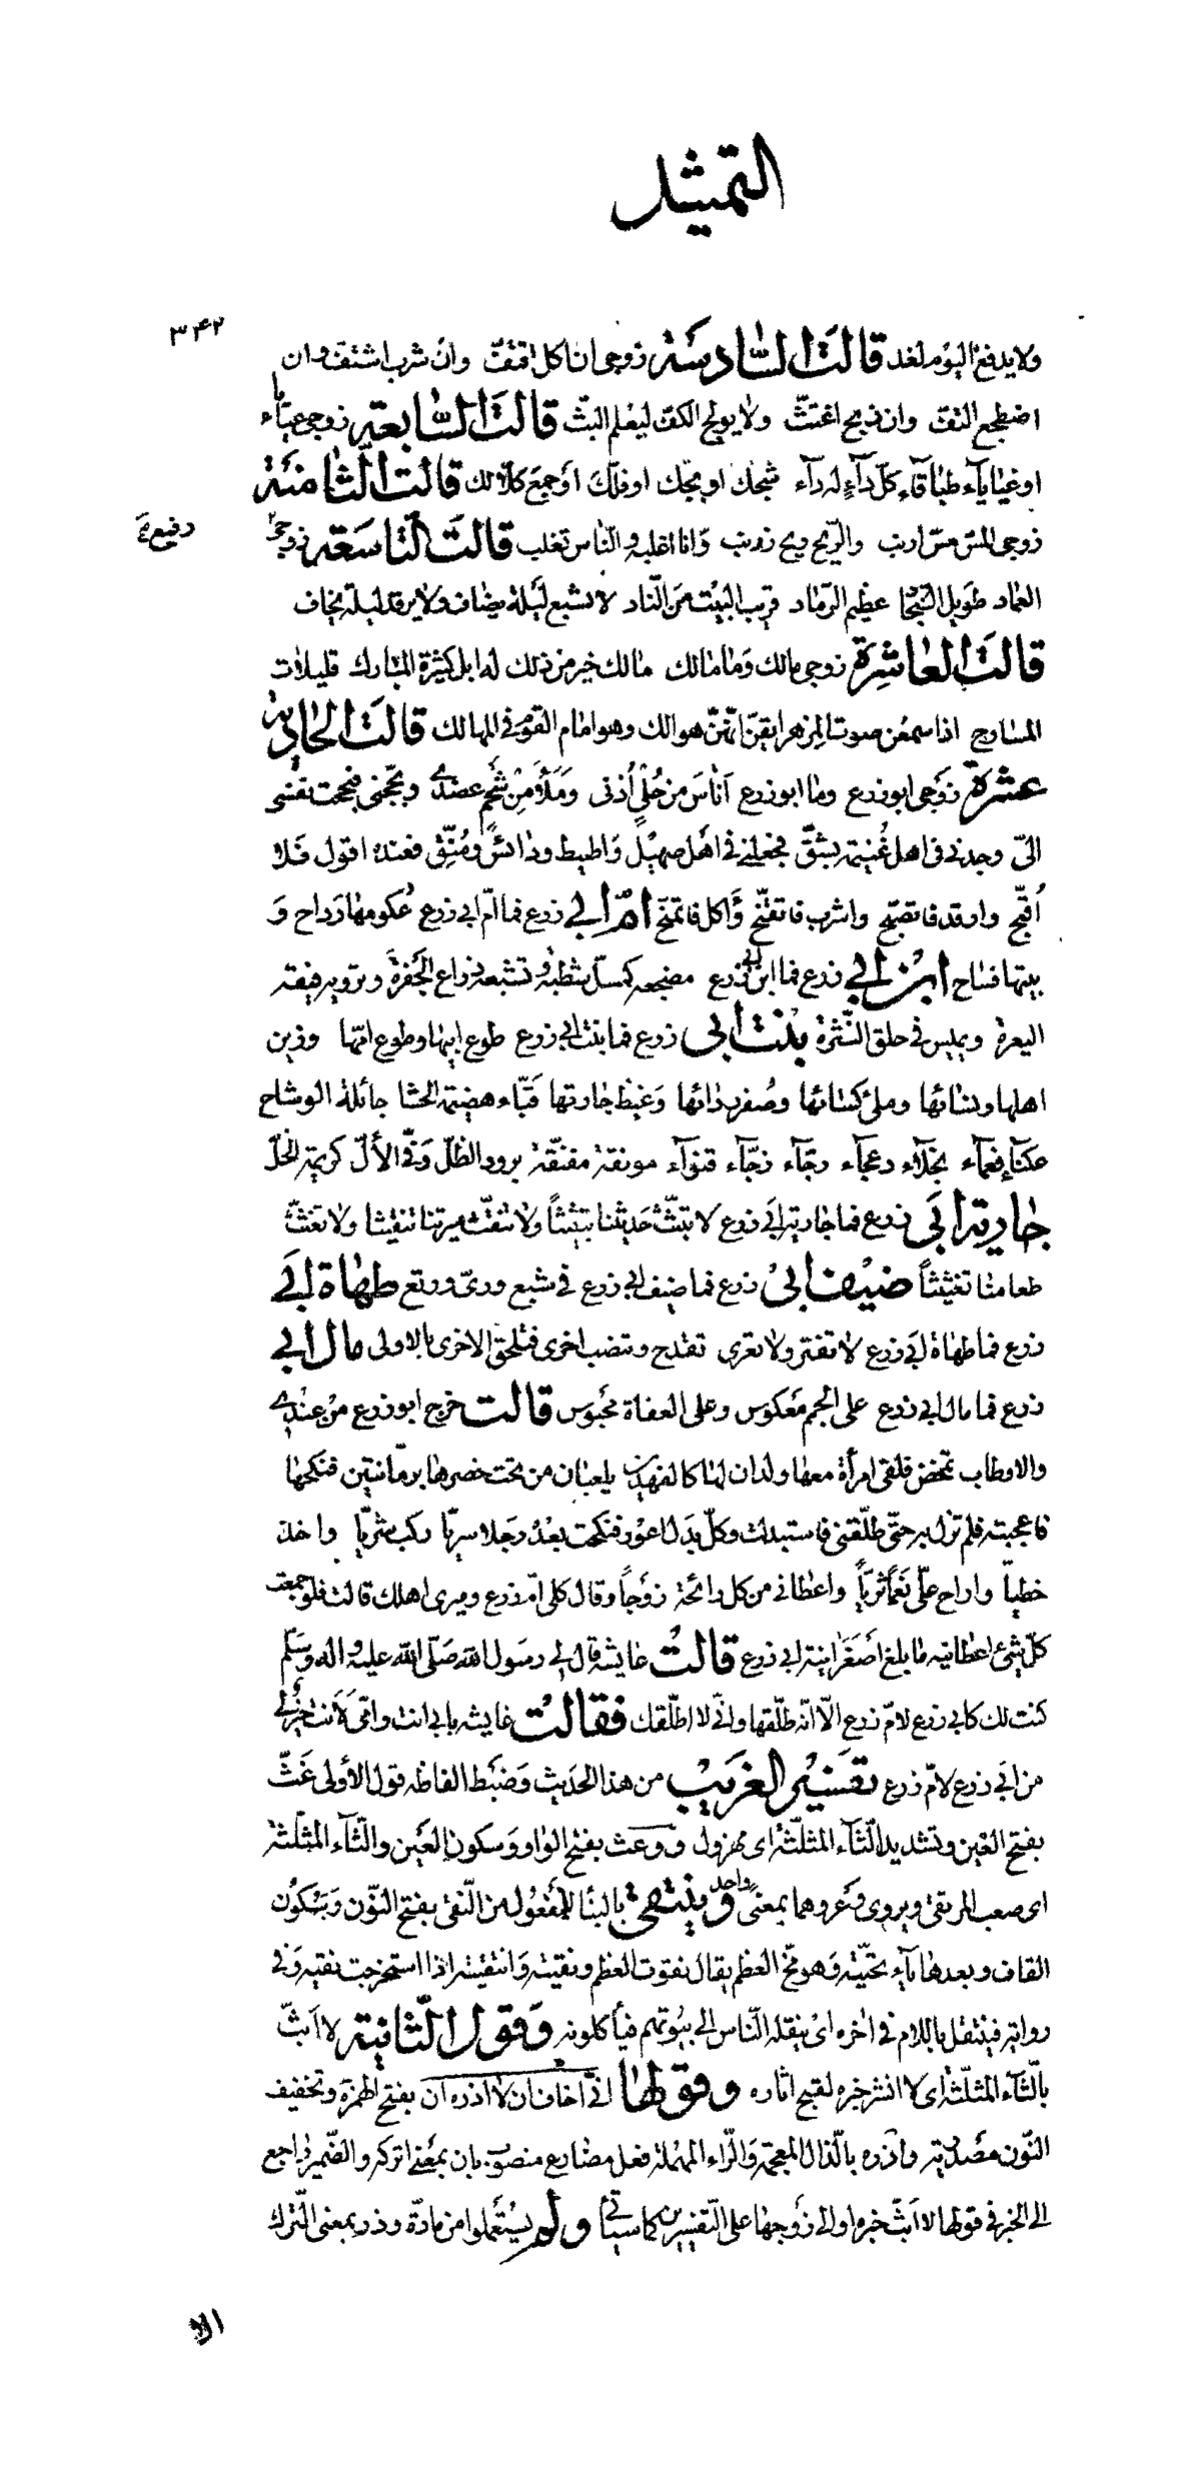 التمثيل
٣٤٢
ولا يدفع اليوم لغد قالت السّادسة زوجي ان اكل اقتفّ وان شرب اشتف وان
اضطجع التفّ وان ذبح اغتثّ ولا يولج الكفّ ليعلم البثّ قالت السّابعة زوجي عياياء
او غياياء طباقاء كلّ داءٍ له داء شجّك او بجّك او فلّك او جمع كلّا لك قالت الثامنة
زوجي المسّ مسّ ارنب والرّيح ريح زرنب وانا اغلبه والنّاس تغلب قالت التّاسعة زوجي رفيع
العماد طويل النّجاد عظيم الرّماد قريب البيت من النّاد لا يشبع ليلة يضاف ولا يرقد ليلة يخاف
قالت العاشرة زوجي مالك وما مالك مالك خير من ذلك له ابل كثيرة المبارك قليلات
المسارح اذا سمعن صوت المزهر ايقنّ انّهنّ هوالك وهو امام القوم في المهالك قالت الحادية
عشرة زوجي ابو زرع وما ابو زرع اناس من حُليّ اُذني وملأ من شحمٍ عضدي وبجّحني فبجحت نفسي
اليّ وجدني في اهل غُنيمة بشقّ فجعلني في اهل صهيل واطيط ودائس ومُنِّق فعنده اقول فلا
اُقبّح وارقد فاتصبّح واشرب فاتقنّح وآكل فاتمنّح امّ ابي زرع فما امّ ابي زرع عُكومها رداح و
بيتها فساح ابن ابي زرع فما ابن ابي زرع مضجعه كمسلّ شطبة وتشبعه ذراع الجفرة وترويه فيقة
اليعرة ويميس في حلق النّثرة بنت ابي زرع فما بنت ابي زرع طوع ابيها وطوع امّها وزين
اهلها ونسائها وملئ كسائها وصُفر ردائها وغيظ جارتها قبّاء هضيمة الحشا جائلة الوشاح
عكناء فعماء نجلاء دعجاء رجّاء زجّاء قنواء مونقة مفنّقة برود الظلّ وفيّ الألّ كريمة الخلّ
جارية ابي زرع فما جارية ابي زرع لا تبثّ حديثنا تبثيثاً ولا تنقّث ميرتنا تنقيثا ولا تغثّث
طعامنا تغثيثاً ضيف ابي زرع فما ضيف ابي زرع في شبع وريّ ورتع طهاة ابي
زرع فما طهاة ابي زرع لا تفتر ولا تعرى تقدح وتنصب اخرى فتلحق الاخرى بالاولى مال ابي
زرع فما مال ابي زرع على الجمم معكوس وعلى العفاة محبوس قالت خرج ابو زرع من عندي
والاوطاب تمخض فلقي امرأة معها ولدان لها كالفهدين يلعبان من تحت خصرها برمّانتين فنكحها
فاعجبته فلم تزل به حتّى طلّقني فاستبدلت وكلّ بدل اعور فنكحت بعده رجلا سريّا ركب شريّا واخذ
خطّيا واراح عليّ نعماً ثريّاً واعطاني من كل رائحة زوجاً وقال كلي امّ زرع وميري اهلك قالت فلو جمعت
كلّ شيء اعطانيه ما بلغ اصغر انية ابي زرع قالت عايشة قال لي رسول الله صلّى الله عليه واله وسلّم
كنت لك كابي زرع لامّ زرع الّا انّه طلّقها وانّي لا اطلّقك فقالت عايشة بابي انت وامّي لانت خير لي
من ابي زرع لامّ زرع تفسير الغريب من هذا الحديث وضبط الفاظه قول الأولى غثّ
بفتح الغين وتشديد الثّاء المثلّثة اى مهزول ووعث بفتح الواو وسكون العين والثّاء المثلّثة
اى صعب المرتقى ويروى وعر وهما بمعنى واحد وينتقى بالبناء للمفعول من النّقي بفتح النّون وبسكون
القاف وبعدها ياء تحتيّة وهو مخّ العظم يقال نقوت العظم ونقيته وانتقيته اذا استخرجت نقيه وفي
رواية فينتقل باللام في اخره اىْ ينقله النّاس الى بيوتهم فيأكلونه وقول الثّانية لا ابثّ
بالثّاء المثلّثة اى لا انشر خبره لقبح اثاره وقولها انّي اخاف ان لا اذره ان بفتح الهمزة وتخفيف
النّون مصدريّة واذره بالّذال المعجمة والرّاء المهملة فعل مضارع منصوب بان بمعنى اتركه والضّمير راجع
الى الخبر في قولها لا ابثّ خبره او الى زوجها على التّفسيرين كما سياتي ولم يستعملوا من مادّة وذر بمعنى التّرك
الا